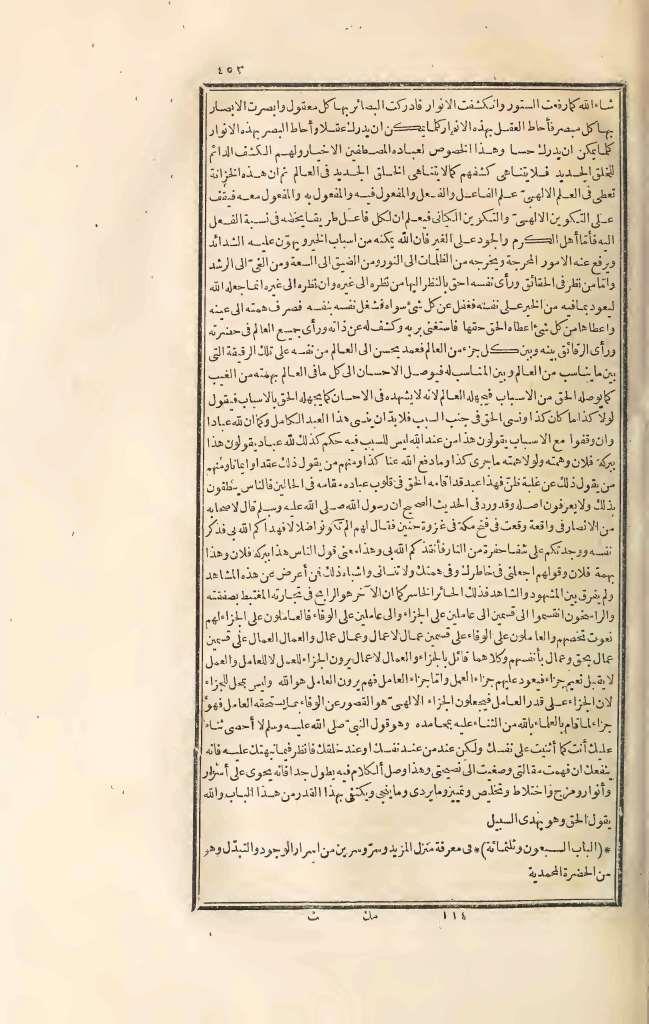 ٤٥٣
شاء الله كما رفعت الستور وانكشفت الانوار فادركت البصائر بها كل معقول وابصرت الابصار
بها كل مبصر فأحاط العقل بهذه الانوار كلما يمكن ان يدرك عقلا وأحاط البصر بهذه الانوار
كلما يمكن ان يدرك حسا وهذا الخصوص لعباده المصطفين الاخيار ولهم الكشف الدائم
للخلق الجديد فلا يتناهى كشفهم كما لا يتناهى الخلق الجديد فى العالم ثم ان هذه الخزانة
تعطى فى العلم الالهىّ علم الفاعل والفعل والمفعول فيه والمفعول به والمفعول معه فيقف
على التكوين الالهىّ والتكوين الكيانى فيعلم ان لكل فاعل طريقا يخصه فى نسبة الفعل
اليه فأما أهل الكرم والجود على الغير فان الله يمكنه من اسباب الخير ويهوّن عليه الشدائد
ويرفع عنه الامور المحرجة ويخرجه من الظلمات الى النور ومن الضيق الى السعة ومن الغىّ الى الرشد
وأما من نظر فى الحقائق ورأى نفسه احق بالنظر اليها من نظره الى غيره وان نظره الى غيره انما جعله الله
ليعود بما فيه من الخير على نفسه فغفل عن كل شئ سواه فشغل نفسه بنفسه فصرف همته الى عينه
واعطاها من كل شئ اعطاه الحق حقها فاستغنى بربه وكشف له عن ذاته ورأى جميع العالم فى حضرته
ورأى الرقائق بينه وبين كل جزء من العالم فعمد يحسن الى العالم من نفسه على تلك الرقيقة التى
بين ما يناسب من العالم وبين المناسب له فيوصل الاحسان الى كل ما فى العالم بهمته من الغيب
كما يوصله الحق من الاسباب فيجهله العالم لانه لا يشهده فى الاحسان كما يجهله الحق بالاسباب فيقول
لولا كذا ما كان كذا ونسى الحق فى جنب السبب فلا بدّ ان ينسى هذا العبد الكامل وكما ان لله عبادا
وان وقفوا مع الاسباب يقولون هذا من عند الله ليس للسبب فيه حكم كذلك لله عباد يقولون هذا
ببركة فلان وهمته ولولا همته ما جرى كذا وما دفع الله عنا كذا ومنهم من يقول ذلك عقدا وايمانا ومنهم
من يقول ذلك عن غلبة ظنّ فهذا عبد قد اقامه الحق فى قلوب عباده مقامه فى الحالين فالناس ينطقون
بذلك ولا يعرفون اصله وقد ورد فى الحديث الصحيح ان رسول الله صلى الله عليه وسلم قال لاصحابه
من الانصار فى واقعة وقعت فى فتح مكة فى غزوة حنين فقال لهم الم تكونوا ضلالا فهداكم الله بى فذكر
نفسه ووجدتكم على شفا حفرة من النار فأنقذكم الله بى وهذا معنى قول الناس هذا ببركة فلان وهذا
بهمة فلان وقولهم اجعلنى فى خاطرك وفى همتك ولا تنسانى واشباه ذلك فمن أعرض عن هذه المشاهد
ولم يفرق بين المشهود والشاهد فذلك الحائر الخاسر كما ان الآخر هو الرابح فى تجارته المغتبط بصفقته
والراسخون انقسموا الى قسمين الى عاملين على الجزاء والى عاملين على الوفاء فالعاملون على الجزاء لهم
نعوت تخصهم والعاملون على الوفاء على قسمين عمال لاعمال وعمال عمال والعمال العمال على قسمين
عمال بحق وعمال بأنفسهم وكلاهما قائل بالجزاء والعمال لاعمال يرون الجزاء للعمل لا للعامل والعمل
لا يقبل نعيم جزاء فيعود عليهم جزاء العمل وأما جزاء العامل فهم يرون العامل هو الله وليس بمحل للجزاء
لان الجزاء على قدر العامل فيجعلون الجزاء الالهىّ هو القصور عن الوفاء بما يستحقه العامل فهو
جزاء لما قام بالعلماء بالله من الثناء عليه بمحامده وهو قول النبىّ صلى الله عليه وسلم لا أحصى ثناء
عليك أنت كما أثنيت على نفسك ولكن عند من عند نفسك او عند خلقك فانظر فيما نبهتك عليه فانه
ينفعك ان فهمت مقالتى وصغيت الى نصيحتى وهذا وصل الكلام فيه يطول جدا فانه يحوى على أسرار
وأنوار ومزج واختلاط وتخليص وتمييز وما يردى وما ينجى ويكتفى بهذا القدر من هذا الباب والله
يقول الحق وهو يهدى السبيل
*(الباب السبعون وثلثمائة)* فى معرفة منزل المزيد وسرّ وسرين من اسرار الوجود والتبدّل وهو
من الحضرة المحمدية
١١٤ مك ث